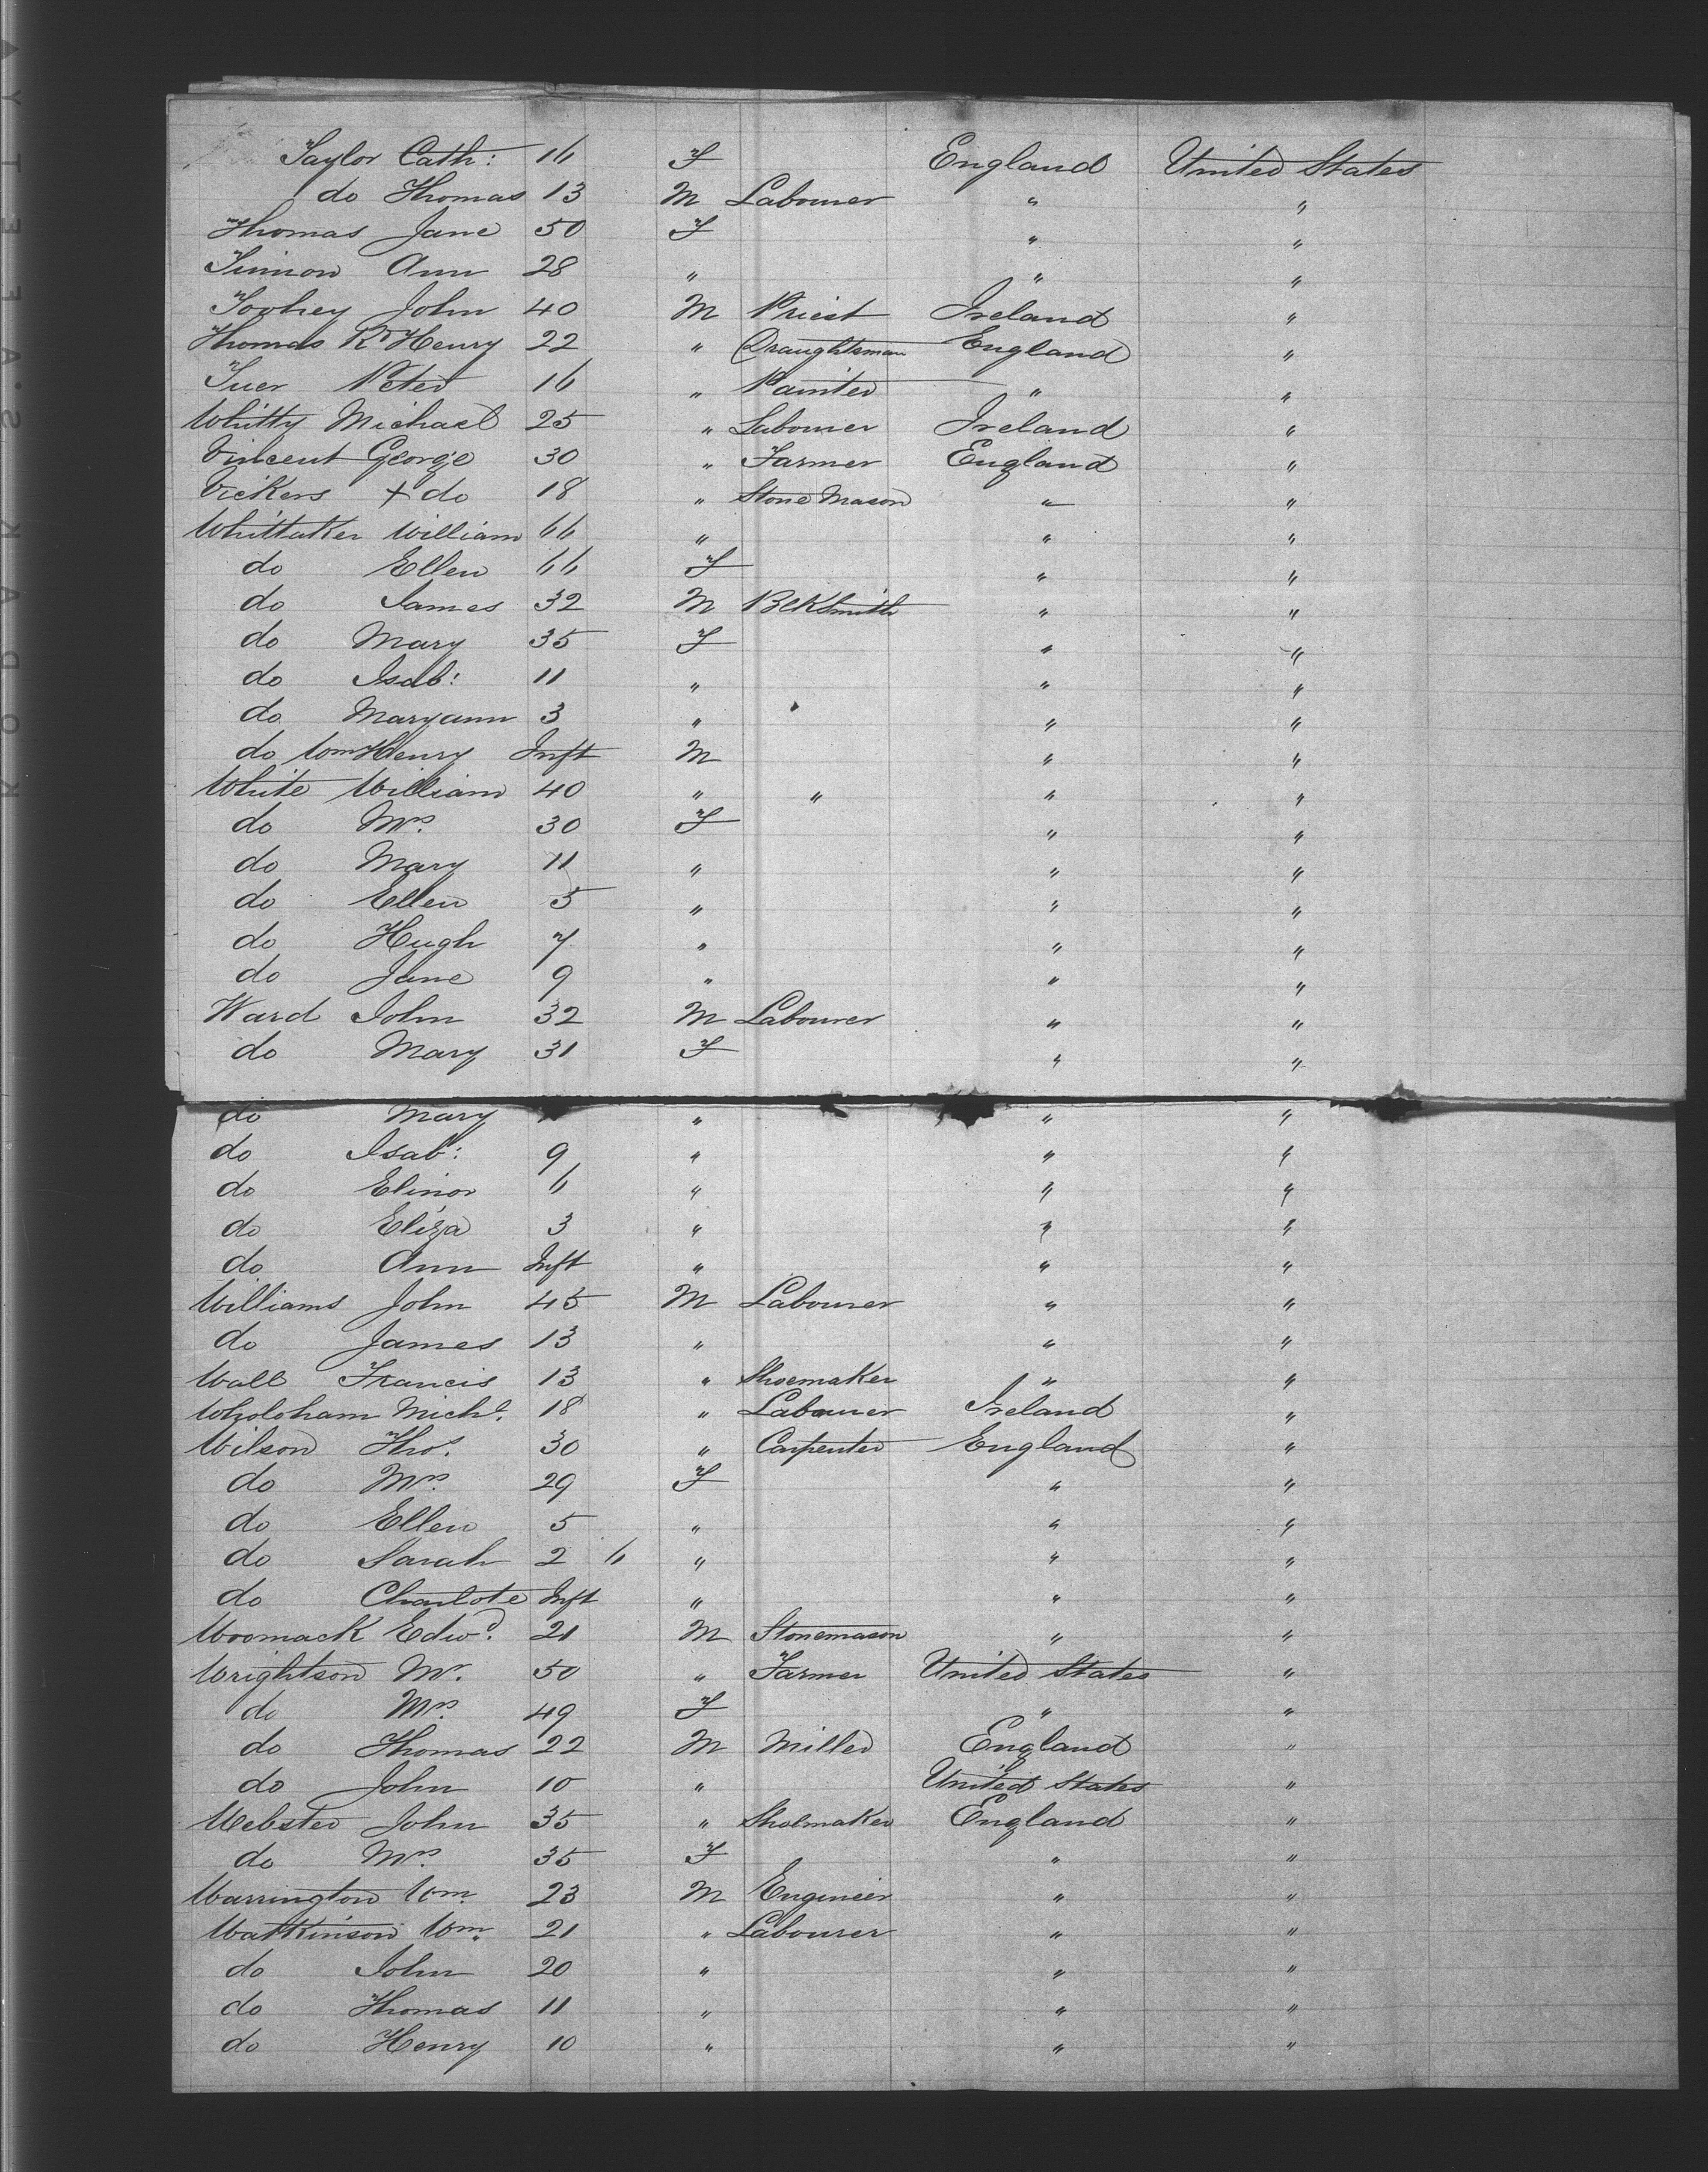 Taylor Cath: 16 F England United States
do Thomas 13 M Labourer " "
Thomas Jane 50 F " "
Ann 28 " " "
Toohey John 40 M Priest Ireland "
Thomas Rd Henry 22 " Draughtsman England "
Tuer Peter 16 " Painter " "
Whitty Michael 25 " Labourer Ireland "
Vincent George 30 " Farmer England "
Vickers + do 18 " Stone Mason " "
Whittaker William 66 " " "
do Ellen 66 F " "
do James 32 M BlKSmith " "
do Mary 35 F " "
do Isab: 11 " " "
do Maryann 3 " " "
do Wm Henry Inft M " "
White William 40 " " " "
do Mrs. 30 F " "
do Mary 11 " " "
do Ellen 5 " " "
do Hugh 7 " " "
do Jane 9 " " "
Ward John 32 M Labourer " "
do Mary 31 F " "
do Mary " " "
do Isab: 9 " " "
do Elinor 6 " " "
do Eliza 3 " " "
do Ann Inft " " "
Williams John 45 M Labourer " "
do James 13 " " "
Wall Francis 13 " Shoemaker " "
Wholoham Michl. 18 " Labourer Ireland "
Wilson Thos. 30 " Carpenter England "
do Mrs. 29 F " "
do Ellen 5 " " "
do Sarah 2 6 " " "
do Charlote Inft " " "
Woomack Edwd. 21 M Stonemason " "
Wrightson Mr. 50 " Farmer United States "
do Mrs. 49 F " "
do Thomas 22 M Miller England "
do John 10 " United States "
Webster John 35 " Shoemaker England "
do Mrs. 35 F " "
Warrington Wm. 23 M Engineer " "
Watkinson Wm. 21 " Labourer " "
do John 20 " " "
do Thomas 11 " " "
do Henry 10 " " "